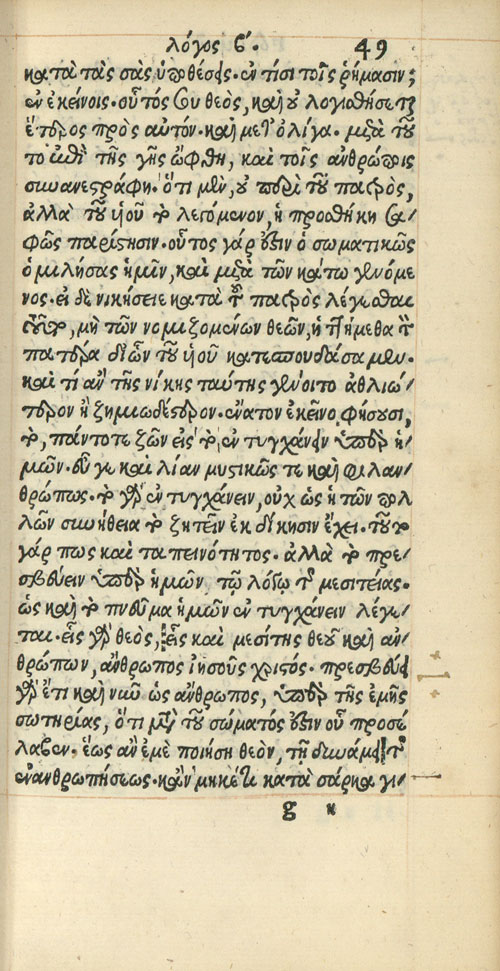 λόγος ϛ΄. 49
κατὰ τὰς σὰς ὑποθέσεις. ἐν τίσι τοῖς ῥήμασιν;
ἐν ἐκείνοις. οὗτός σου θεὸς, καὶ οὐ λογισθήσεται
ἕτερος πρὸς αὐτόν. καὶ μετ' ὀλίγα. μετὰ τοῦ
το ἐπὶ τῆς γῆς ὤφθη, καὶ τοῖς ἀνθρώποις
συνανεστράφη. ὅτι μὲν, οὐ περὶ τοῦ πατρὸς,
ἀλλὰ τοῦ υἱοῦ τὸ λεγόμενον, ἡ προσθήκη σα/
φῶς παρίστησιν. οὗτος γάρ ἐστιν ὁ σωματικῶς
ὁμιλήσας ἡμῖν, καὶ μετὰ τῶν κάτω γενόμε
νος. εἰ δὲ νικήσειε κατὰ τοῦ πατρὸς λέγεσθαι
τοῦτο, μὴ τῶν νομιζομένων θεῶν, ἡττήμεθα τὸν
πατέρα δι ὧν τοῦ υἱοῦ κατεσπουδάσαμεν.
καὶ τί ἂν τῆς νίκης ταύτης γένοιτο ἀθλιώ/
τερον ἢ ζημιωδέστερον. ἔνατον ἐκεῖνο φήσουσι,
τὸ, πάντοτε ζῶν εἰς τὸ ἐντυγχάνειν ὑπὲρ ἡ/
μῶν. εὖ γε καὶ λίαν μυστικῶς τε καὶ φιλαν/
θρώπως. τὸ γὰρ ἐντυγχάνειν, οὐχ ὡς ἡ τῶν πολ
λῶν συνήθεια τὸ ζητεῖν ἐκδίκησιν ἔχει. τοῦτο
γάρ πως καὶ ταπεινότητος. ἀλλὰ τὸ πρε/
σβεύειν ὑπὲρ ἡμῶν τῷ λόγῳ τῆς μεσιτείας.
ὡς καὶ τὸ πνεῦμα ἡμῶν ἐντυγχάνειν λέγε/
ται. εἷς γὰρ θεὸς, εἷς καὶ μεσίτης θεοῦ καὶ ἀν/
θρώπων, ἄνθρωπος ἰησοῦς χριστός. πρεσβεύει
γὰρ ἔτι καὶ νῦν ὡς ἄνθρωπος, ὑπὲρ τῆς ἐμῆς
σωτηρίας, ὅτι μετὰ τοῦ σώματός ἐστιν οὗ προσέ
λαβεν. ἕως ἂν ἐμὲ ποιήσῃ θεὸν, τῇ δυνάμει τῆς
ἐνανθρωπήσεως. κἂν μηκέτι κατὰ σάρκα γι/
g ii